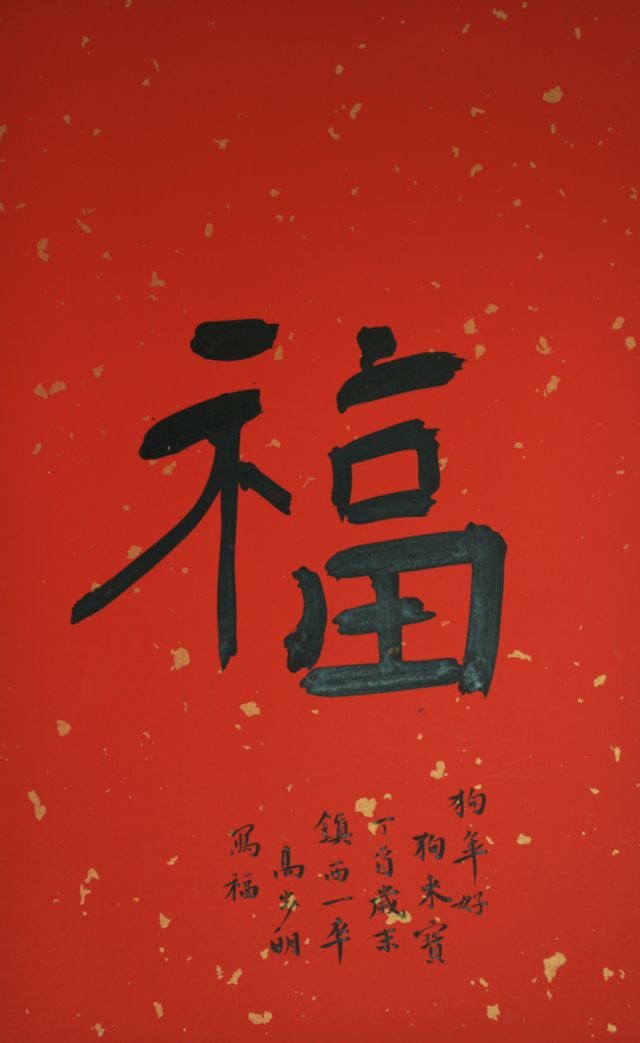 福
狗年好
狗来寳
丁酉歳末
鎮西一卒
高步明
寫福